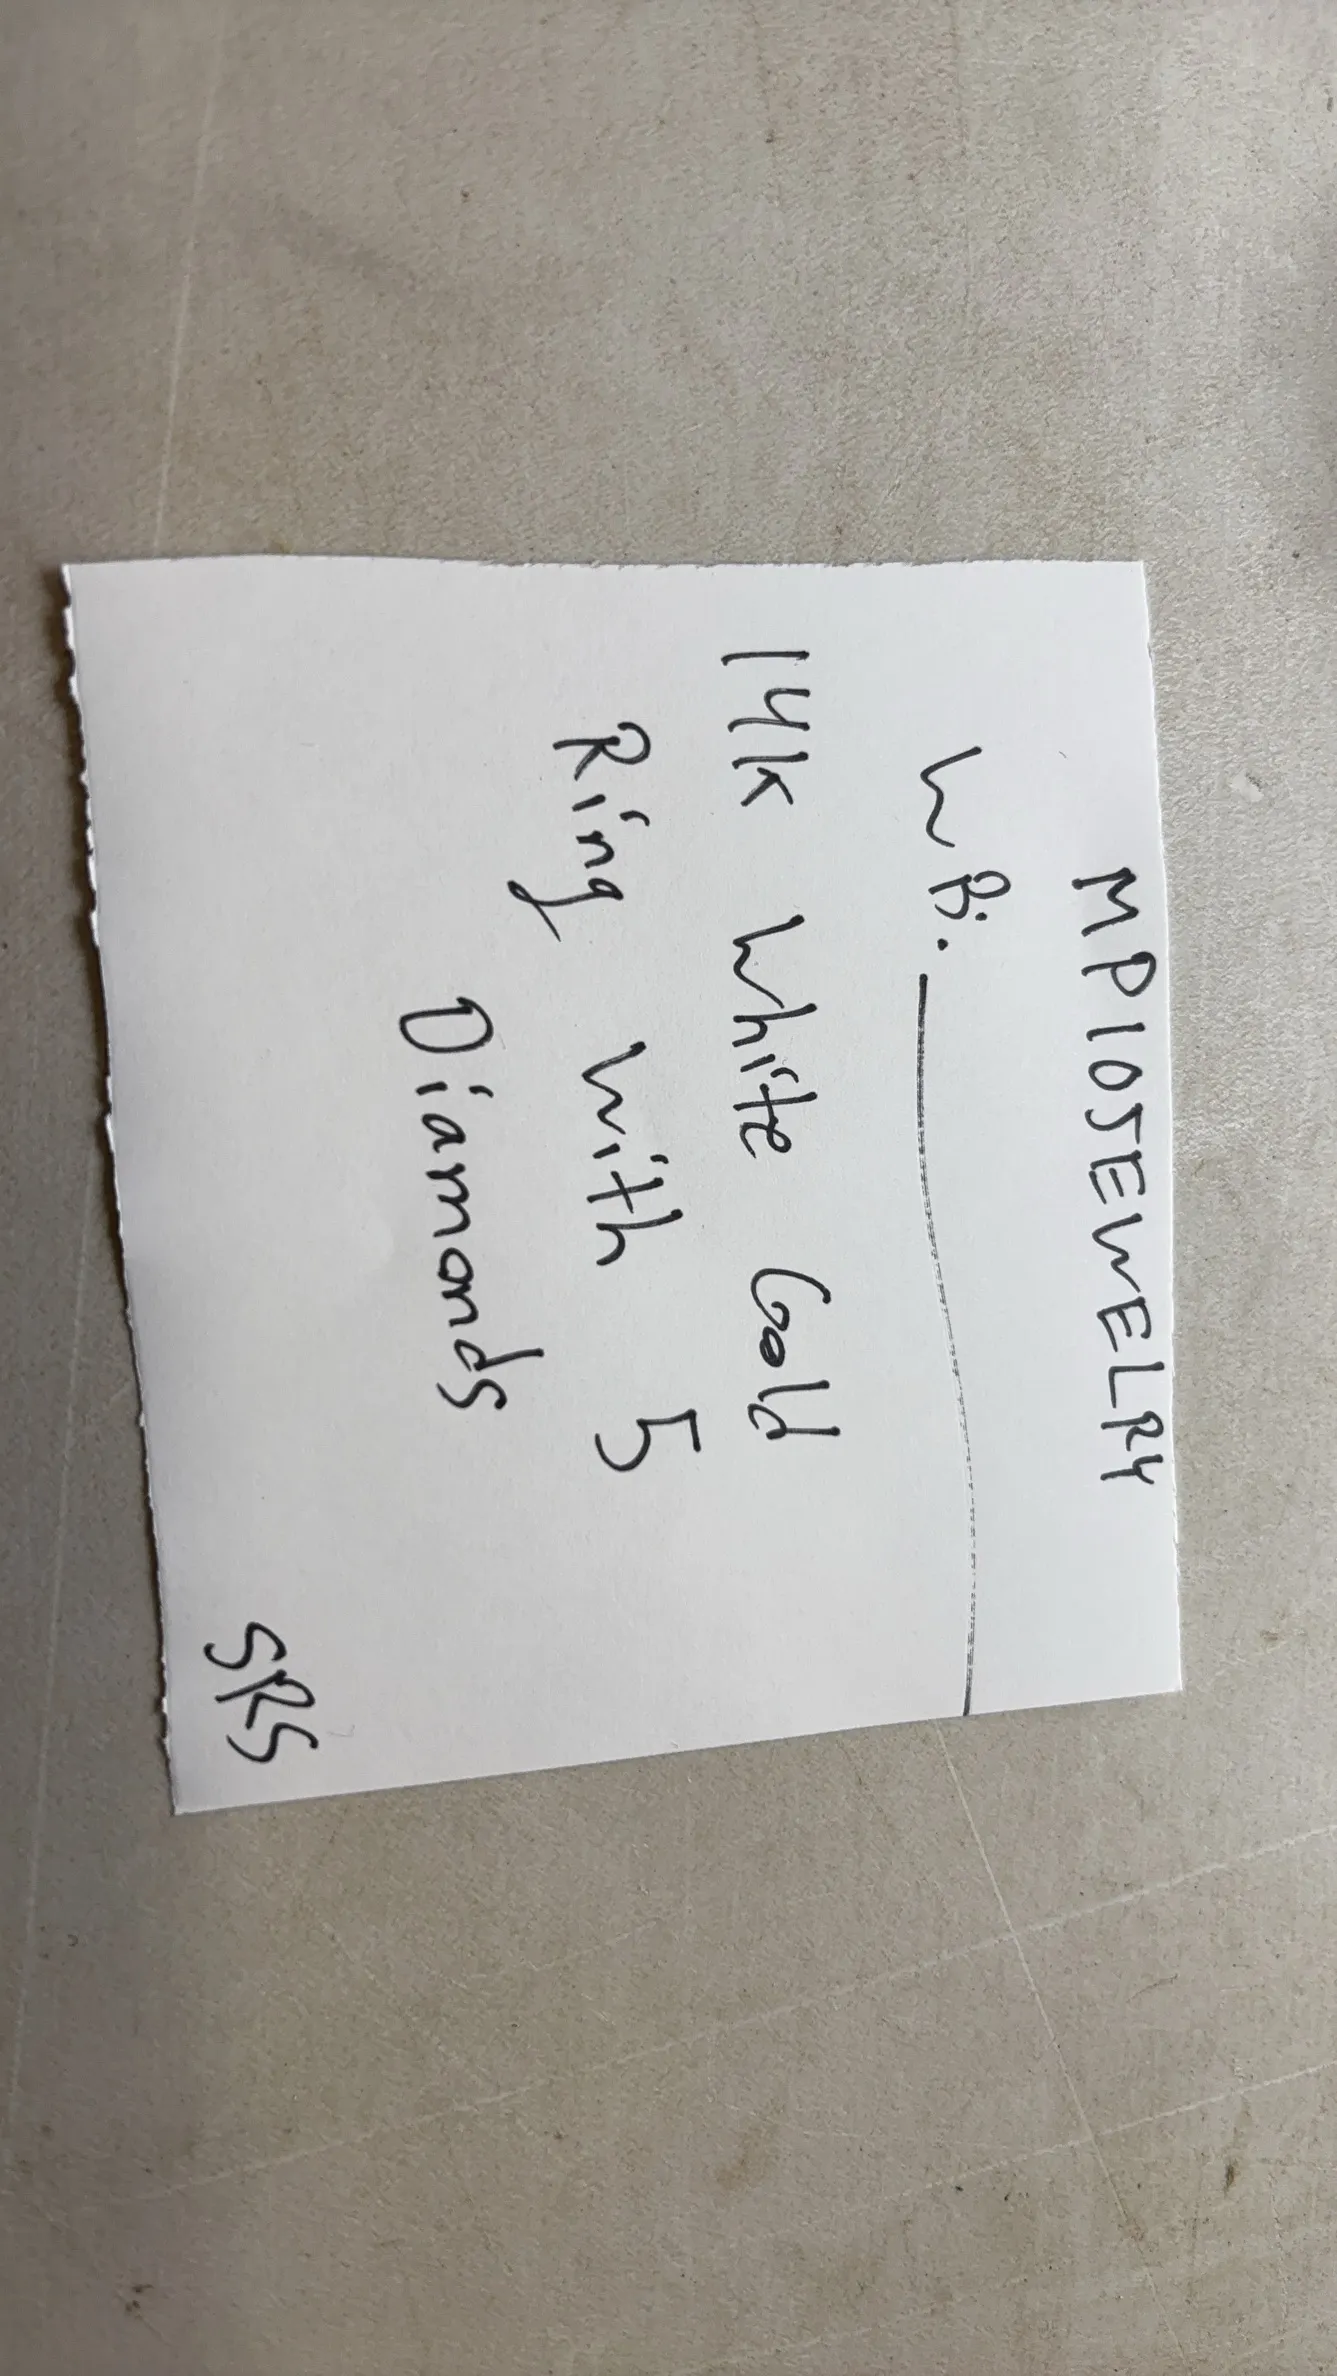 MP105EWELRY
W B:. 
14K White Gold
Ring with 5
Diamonds
SRS